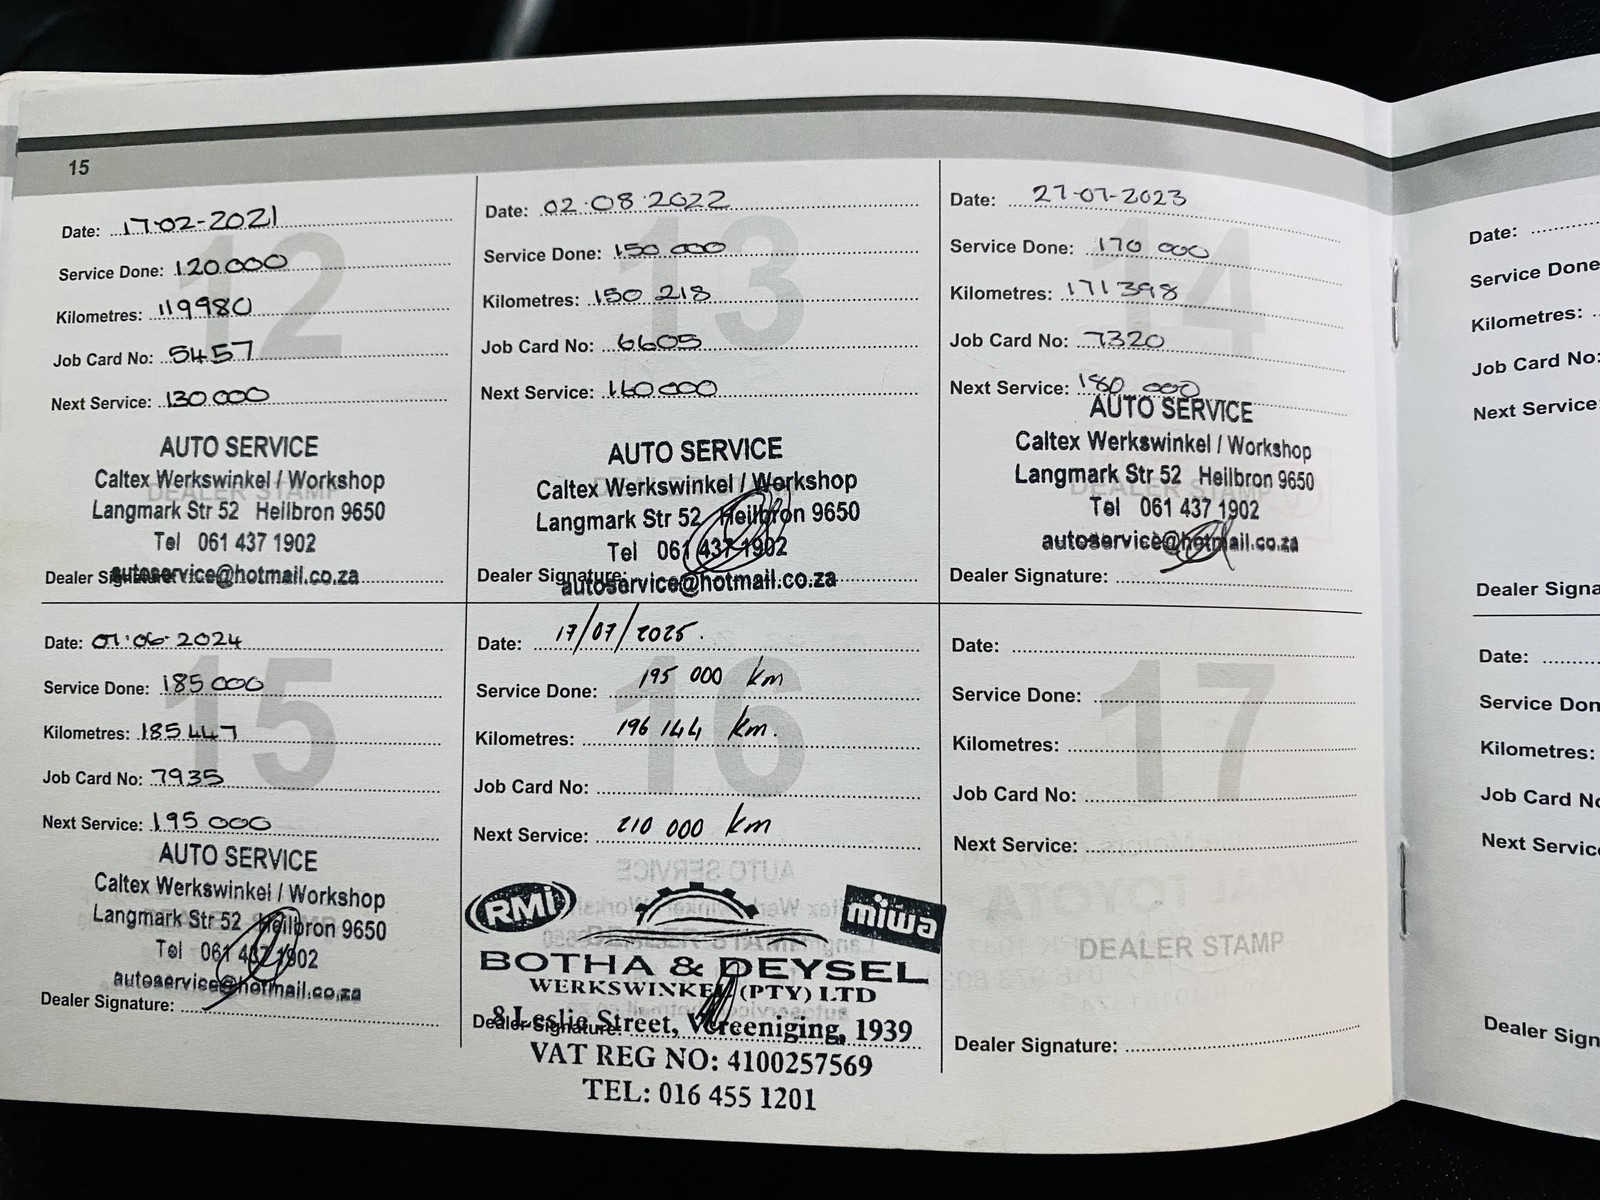 15
12
Date: 17-02-2021
Service Done: 120.000
Kilometres: 119980
Job Card No: 5457
Next Service: 130.000
DEALER STAMP
AUTO SERVICE
Caltex Werkswinkel / Workshop
Langmark Str 52 Heilbron 9650
Tel 061 437 1902
autoservice@hotmail.co.za
Dealer Signature:
13
Date: 02.08.2022
Service Done: 150.000
Kilometres: 150 218
Job Card No: 6605
Next Service: 160.000
AUTO SERVICE
Caltex Werkswinkel / Workshop
Langmark Str 52 Heilbron 9650
Tel 061 437 1902
autoservice@hotmail.co.za
Dealer Signature:
14
Date: 27-07-2023
Service Done: 170 000
Kilometres: 171398
Job Card No: 7320
Next Service: 180 000
DEALER STAMP
AUTO SERVICE
Caltex Werkswinkel / Workshop
Langmark Str 52 Heilbron 9650
Tel 061 437 1902
autoservice@hotmail.co.za
Dealer Signature:
15
Date: 2024
Service Done: 185 000
Kilometres: 185 447
Job Card No: 7935
Next Service: 195 000
AUTO SERVICE
Caltex Werkswinkel / Workshop
Langmark Str 52 Heilbron 9650
Tel 061 437 1902
autoservice@hotmail.co.za
Dealer Signature:
16
Date: 17/07/2025.
Service Done: 195 000 km
Kilometres: 196 144 km.
Job Card No:
Next Service: 210 000 km
DEALER STAMP
RMI
miwa
BOTHA & DEYSEL
WERKSWINKEL (PTY) LTD
8 Leslie Street, Vereeniging, 1939
Dealer Signature:
VAT REG NO: 4100257569
TEL: 016 455 1201
17
Date:
Service Done:
Kilometres:
Job Card No:
Next Service:
DEALER STAMP
Dealer Signature:
Date:
Service Done
Kilometres:
Job Card No:
Next Service:
Dealer Signa
Date:
Service Don
Kilometres:
Job Card No
Next Servic
Dealer Sign